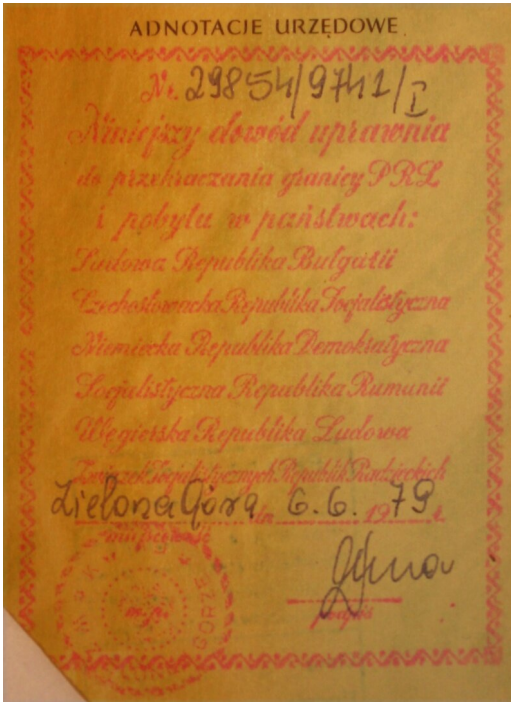 ADNOTACJE URZĘDOWE
Nr. 29854/9741/I
Niniejszy dowód uprawnia
do przekraczania granicy PRL
i pobytu w państwach:
Ludowa Republika Bułgarii
Czechosłowacka Republika Socjalistyczna
Niemiecka Republika Demokratyczna
Socjalistyczna Republika Rumunii
Węgierska Republika Ludowa
Związek Socjalistycznych Republik Radzieckich
Zielona Góra dn. 6.6. 1979 r.
miejscowość
m.p.
podpis